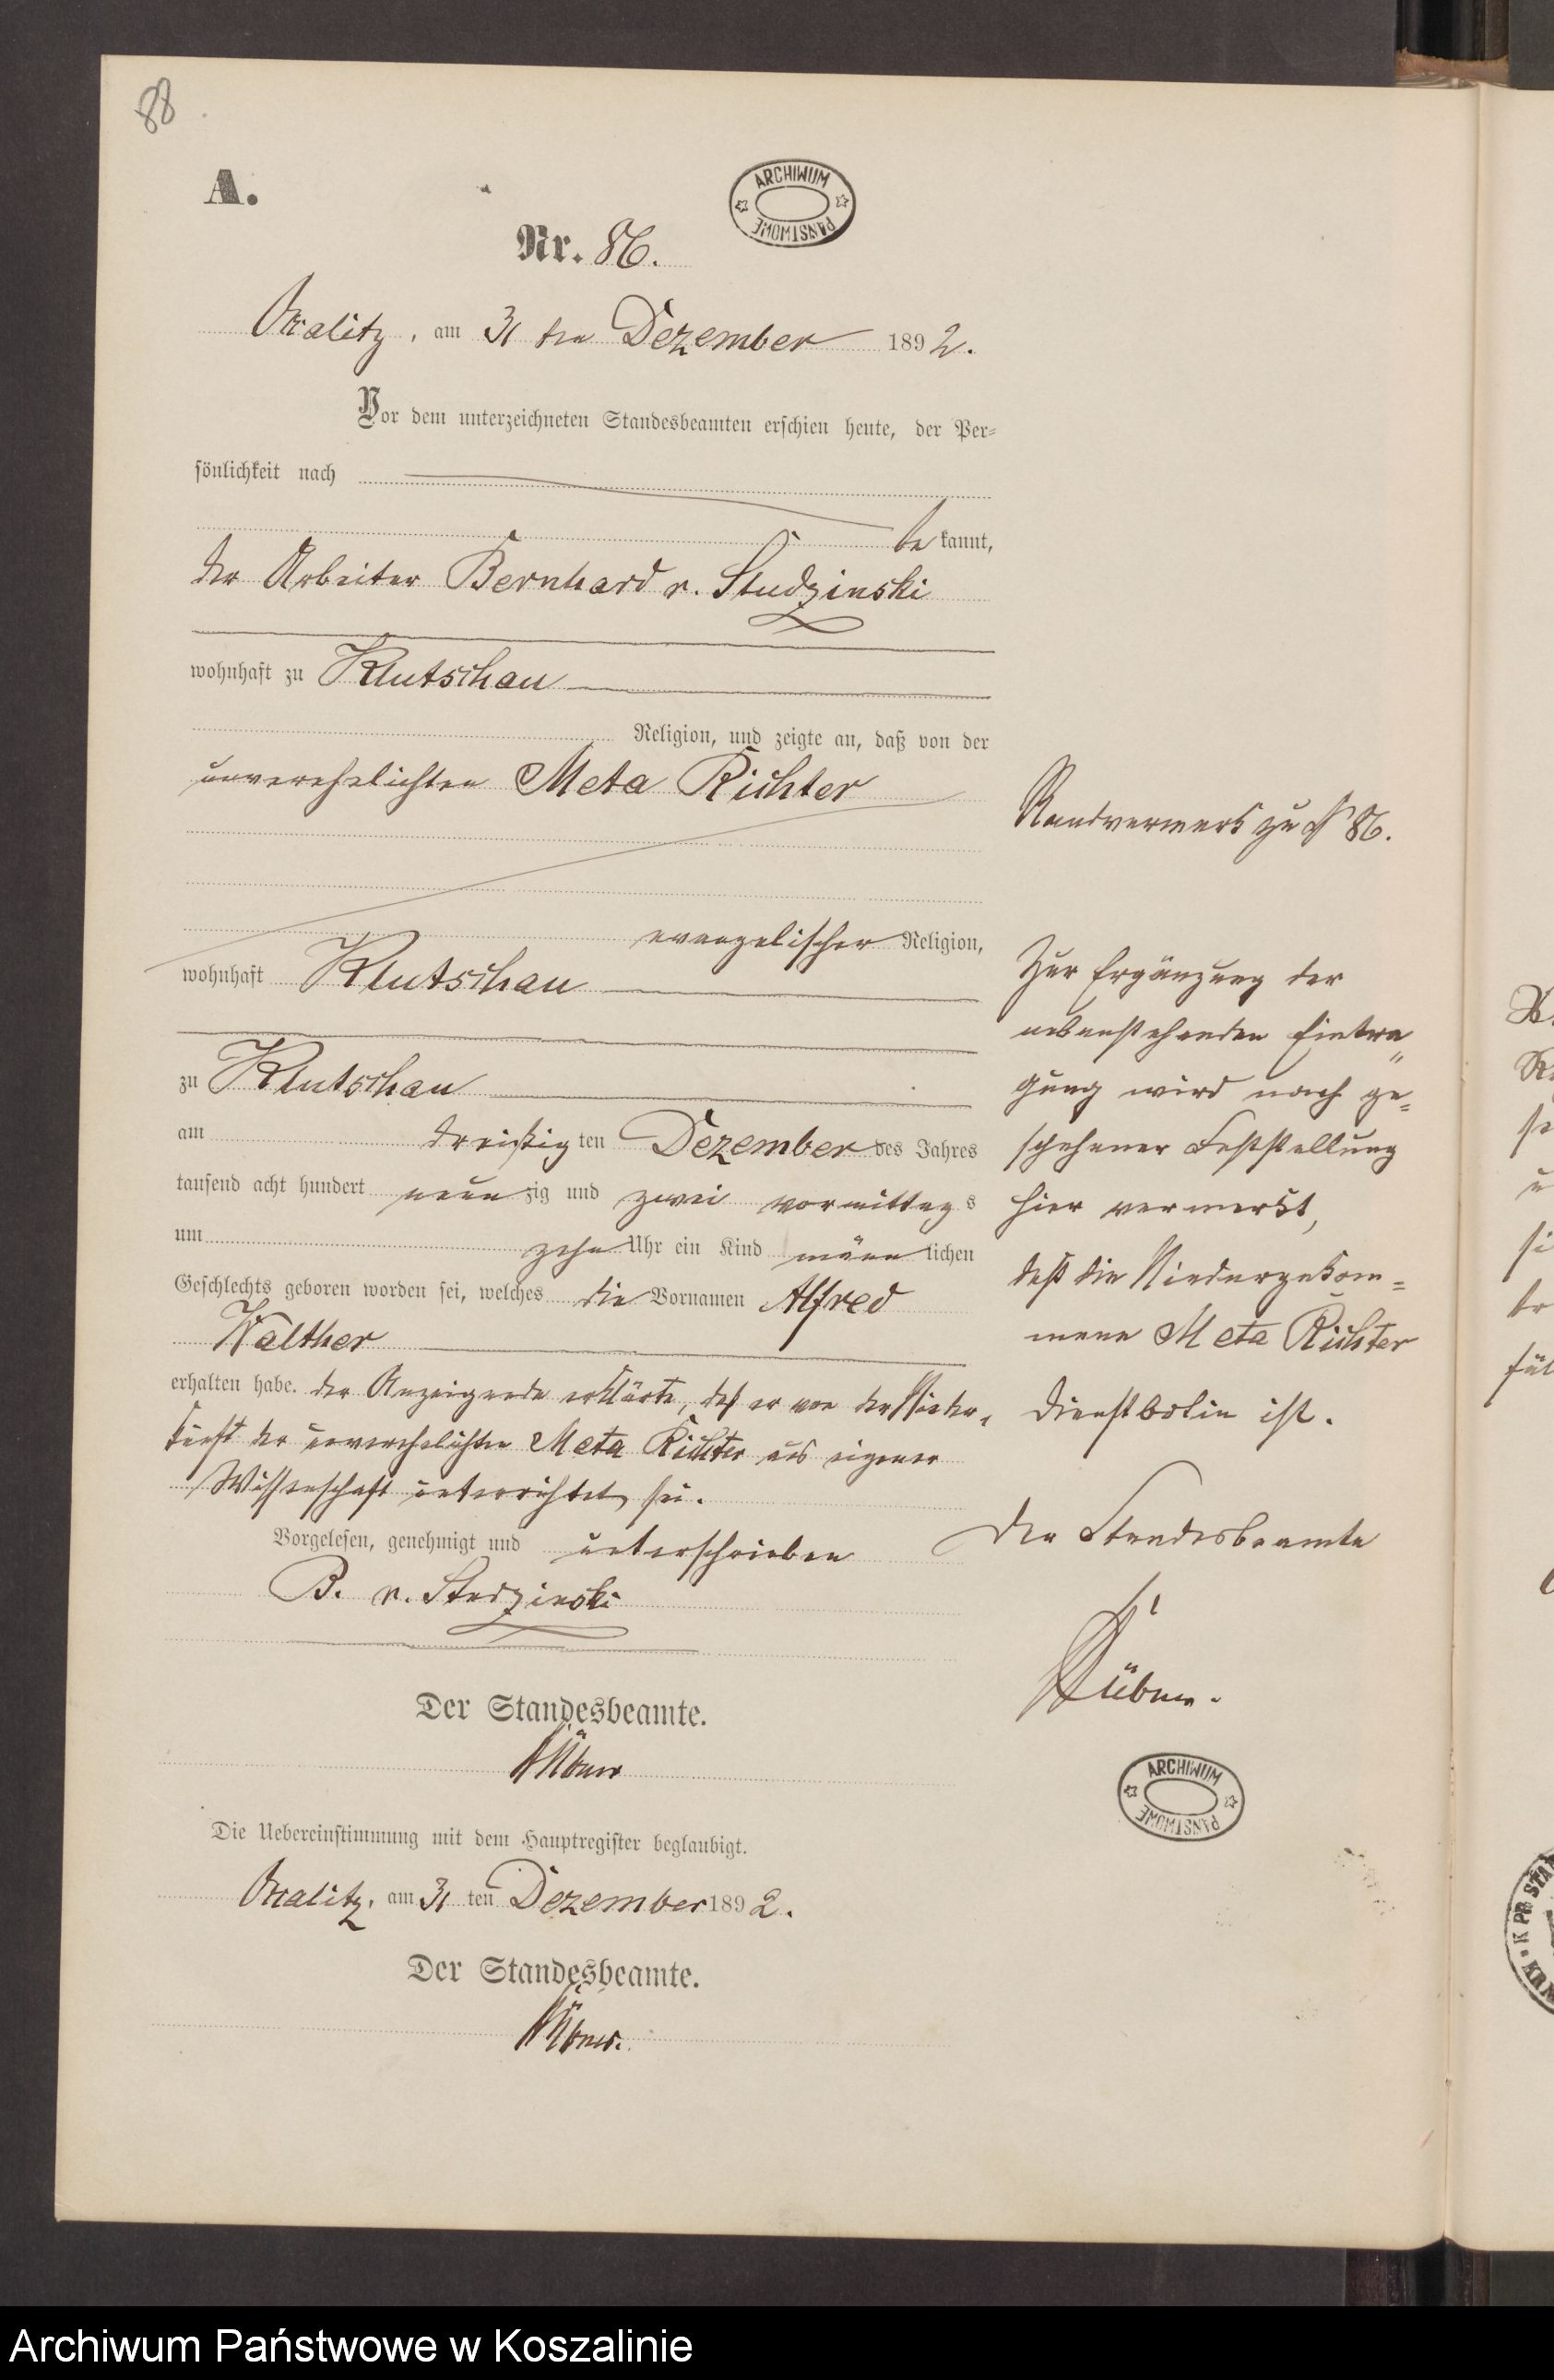 88
A.
ARCHIWUM
PAŃSTWOWE
Nr. 86.
am 31 ten Dezember 1892.
Vor dem unterzeichneten Standesbeamten erschien heute, der Per-
sönlichkeit nach
be kannt,
der Arbeiter Bernhard v. Studzinski
wohnhaft zu Klutschau
Religion, und zeigte an, daß von der
unverehelichten Meta Richter
evangelischer Religion,
wohnhaft Klutschau
zu Klutschau
am dreißig ten Dezember des Jahres
tausend acht hundert neun zig und zwei vormittag s
um zehn Uhr ein Kind männ lichen
Geschlechts geboren worden sei, welches die Vornamen Alfred
Walther
erhalten habe. Der Anzeigende erklärte, daß er von der Nieder-
kunft der unverehelichten Meta Richter aus eigener
Wissenschaft unterrichtet sei.
Vorgelesen, genehmigt und unterschrieben
B. v. Studzinski
Der Standesbeamte.
Die Uebereinstimmung mit dem Hauptregister beglaubigt.
am 31 ten Dezember 1892.
Der Standesbeamte.
Randvermerk zu № 86.
Zur Ergänzung der
nebenstehenden Eintra„
gung wird nach ge=
schehener Feststellung
hier vermerkt,
daß die Niedergekom=
mene Meta Richter
Dienstbotin ist.
Der Standesbeamte
ARCHIWUM
PAŃSTWOWE
Archiwum Państwowe w Koszalinie